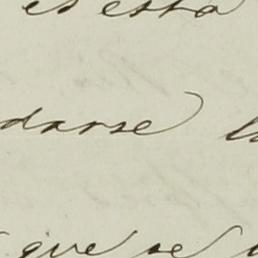 es esta
darse
que se